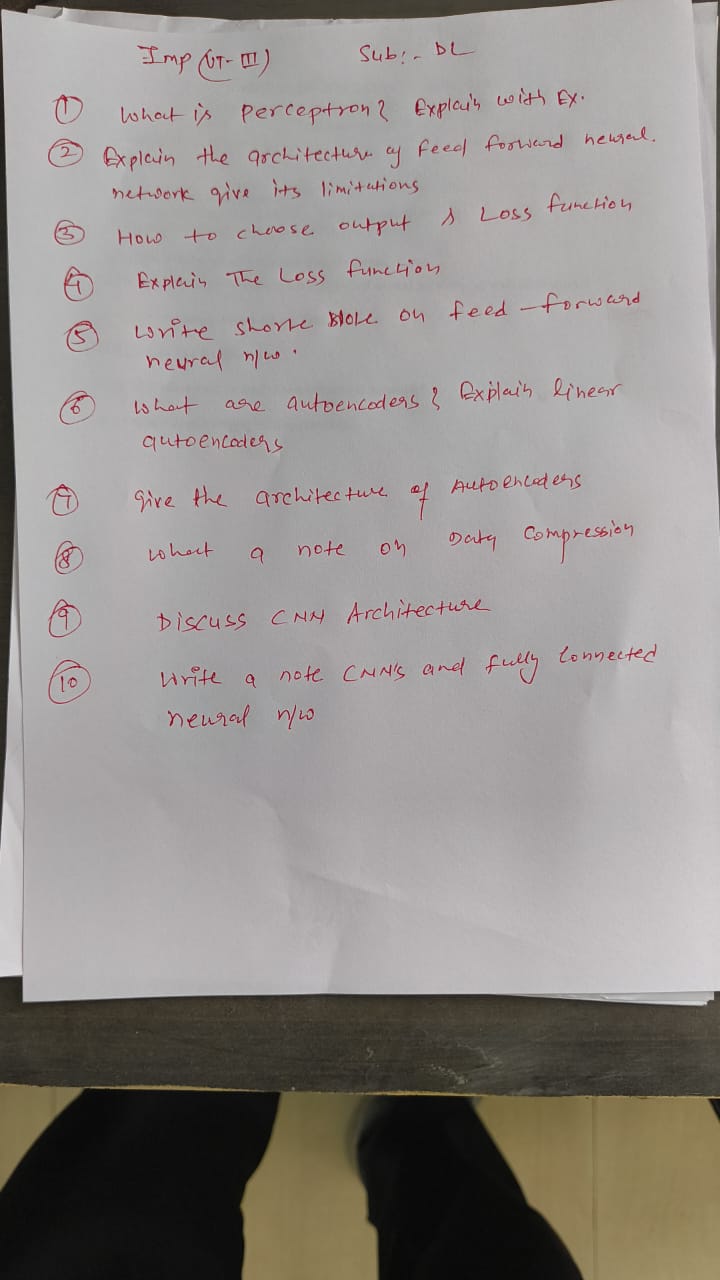 Imp (UT-III) Sub:- DL
① What is perceptron? Explain with Ex.
② Explain the architecture of feed forward neural.
network give its limitations
③ How to choose output & Loss function
④ Explain The Loss function
⑤ Write short note on feed-forward
neural n/w.
⑥ What are autoencoders? Explain linear
autoencoders
⑦ Give the architecture of Autoencoders
⑧ What a note on Data Compression
⑨ Discuss CNN Architecture
⑩ Write a note CNN's and fully Connected
neural n/w